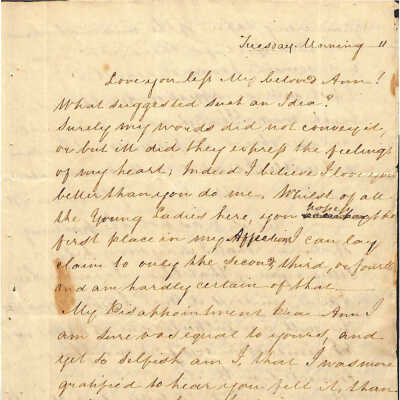 Tuesday Morning 11
Love you less My beloved Ann!
What suggested such an Idea?
Surely my words did not convey it,
or but ill did they express the feelings
of my heart; Indeed I believe I love you
better than you do me, Whilst of all
the Young Ladies here, you the
first place in my Affection I can lay
claim to only the second, third, or fourth
and am hardly certain of that.
My Disappointment Dear Ann I
am sure was equal to yours, and
yet so selfish am I, that I was more
gratified to hear you felt it, than